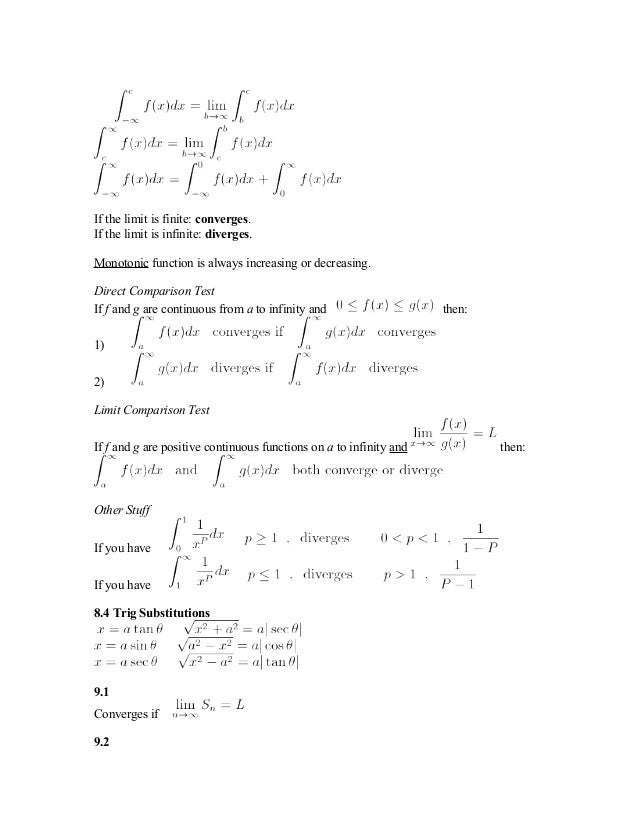 ∫_{-∞}^{c} f(x)dx = lim_{b→∞} ∫_{b}^{c} f(x)dx
∫_{c}^{∞} f(x)dx = lim_{b→∞} ∫_{c}^{b} f(x)dx
∫_{-∞}^{∞} f(x)dx = ∫_{-∞}^{0} f(x)dx + ∫_{0}^{∞} f(x)dx
If the limit is finite: converges.
If the limit is infinite: diverges.
Monotonic function is always increasing or decreasing.
Direct Comparison Test
If f and g are continuous from a to infinity and 0 ≤ f(x) ≤ g(x) then:
1) ∫_{a}^{∞} f(x)dx converges if ∫_{a}^{∞} g(x)dx converges
2) ∫_{a}^{∞} g(x)dx diverges if ∫_{a}^{∞} f(x)dx diverges
Limit Comparison Test
If f and g are positive continuous functions on a to infinity and lim_{x→∞} f(x)/g(x) = L then:
∫_{a}^{∞} f(x)dx and ∫_{a}^{∞} g(x)dx both converge or diverge
Other Stuff
If you have ∫_{0}^{1} 1/x^P dx p ≥ 1 , diverges 0 < p < 1 , 1/(1 − P)
If you have ∫_{1}^{∞} 1/x^P dx p ≤ 1 , diverges p > 1 , 1/(P − 1)
8.4 Trig Substitutions
x = a tan θ √(x² + a²) = a| sec θ|
x = a sin θ √(a² − x²) = a| cos θ|
x = a sec θ √(x² − a²) = a| tan θ|
9.1
Converges if lim_{n→∞} S_n = L
9.2